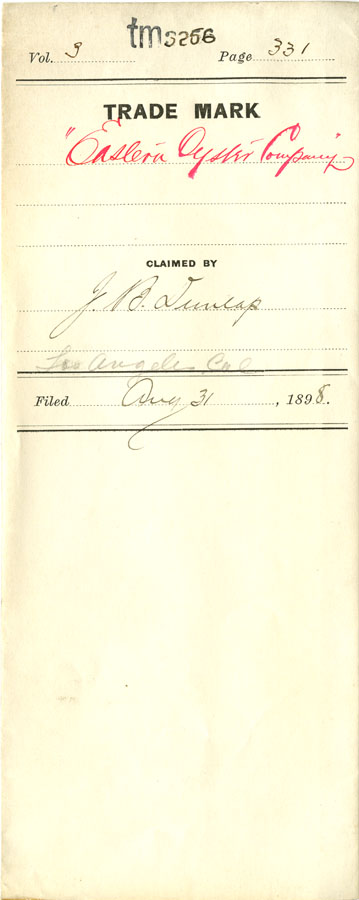 tm3256
Vol. 3 Page 331
TRADE MARK
"Eastern Oyster Company"
CLAIMED BY
J. B. Dunlap
Los Angeles Cal
Filed Aug 31, 1898.